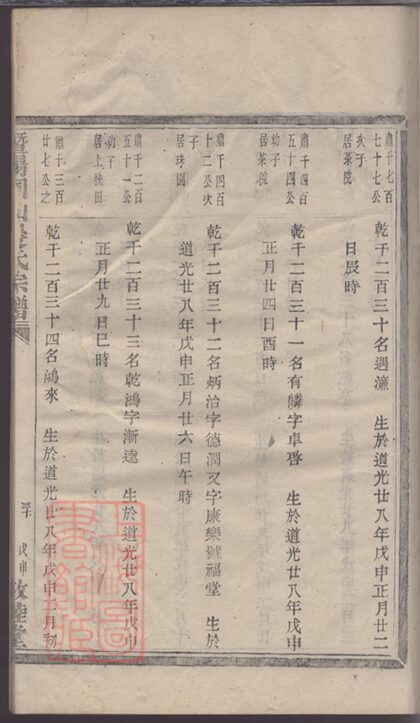 肅千七百
七十七公
次子
居茶院
乾千二百三十名遇濂 生於道光廿八年戊申正月廿二
日辰時
肅千四百
五十四公
幼子
居茶院
乾千二百三十一名有麟字卓啓 生於道光廿八年戊申
正月廿四日酉時
肅千四百
十二公次
子
居球園
乾千二百三十二名炳治字德潤又字康樂號福堂 生於
道光廿八年戊申正月廿六日午時
肅千二百
五十一公
幼子
居上秧田
乾千二百三十三名乾鴻字漸逵 生於道光廿八年戊申
正月廿九日巳時
肅千三百
廿七公之
乾千二百三十四名鴻來 生於道光廿八年戊申二月初
暨陽
氏宗譜
戊申
敦睦堂
書館